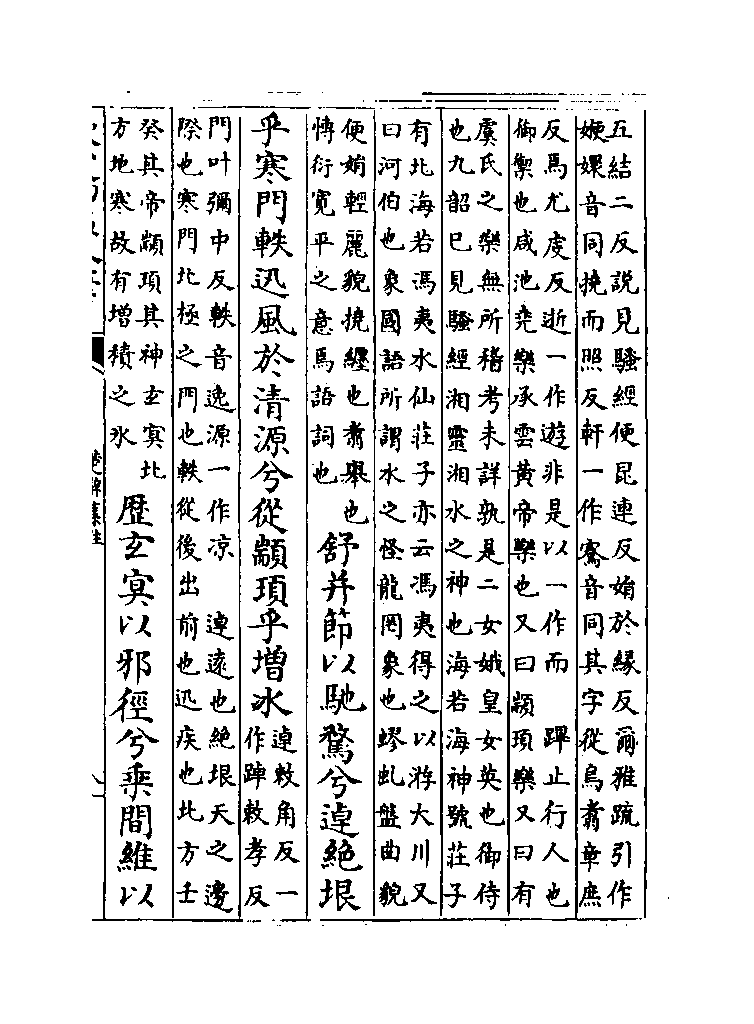 五結二反說見騷經便昆連反娟於緣反爾雅疏引作
嬽嬛音同撓而照反軒一作騫音同其字從鳥翥章庶
反焉尤虔反逝一作遊非是以一作而　蹕止行人也
御禦也咸池堯樂承雲黃帝樂也又曰顓頊樂又曰有
虞氏之樂無所稽考未詳孰是二女娥皇女英也御侍
也九韶已見騷經湘靈湘水之神也海若海神號莊子
有北海若馮夷水仙莊子亦云馮夷得之以游大川又
曰河伯也象國語所謂水之怪龍罔象也蟉虬盤曲貌
便娟輕麗貌撓纏也翥舉也
愽衍寬平之意焉語詞也
舒并節以馳騖兮逴絕垠
乎寒門軼迅風於清源兮從顓頊乎增冰
逴敕角反一
作踔敕孝反
門叶彌中反軼音逸源一作凉　逴遠也絕垠天之邊
際也寒門北極之門也軼從後出前也迅疾也北方壬
癸其帝顓頊其神玄冥北
方地寒故有增積之氷
歷玄冥以邪徑兮乘間維以
楚辭集註